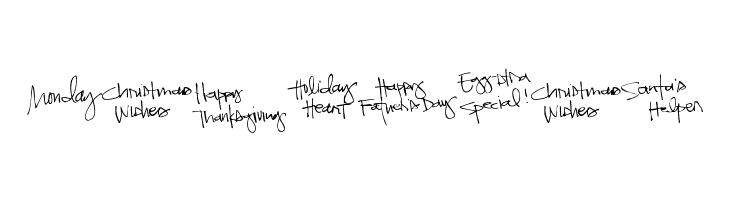 Monday
Christmas
Wishes
Happy
Thanksgiving
Holiday
Heart
Happy
Father's Day
Egg-stra
special!
Christmas
Wishes
Santa's
Helper